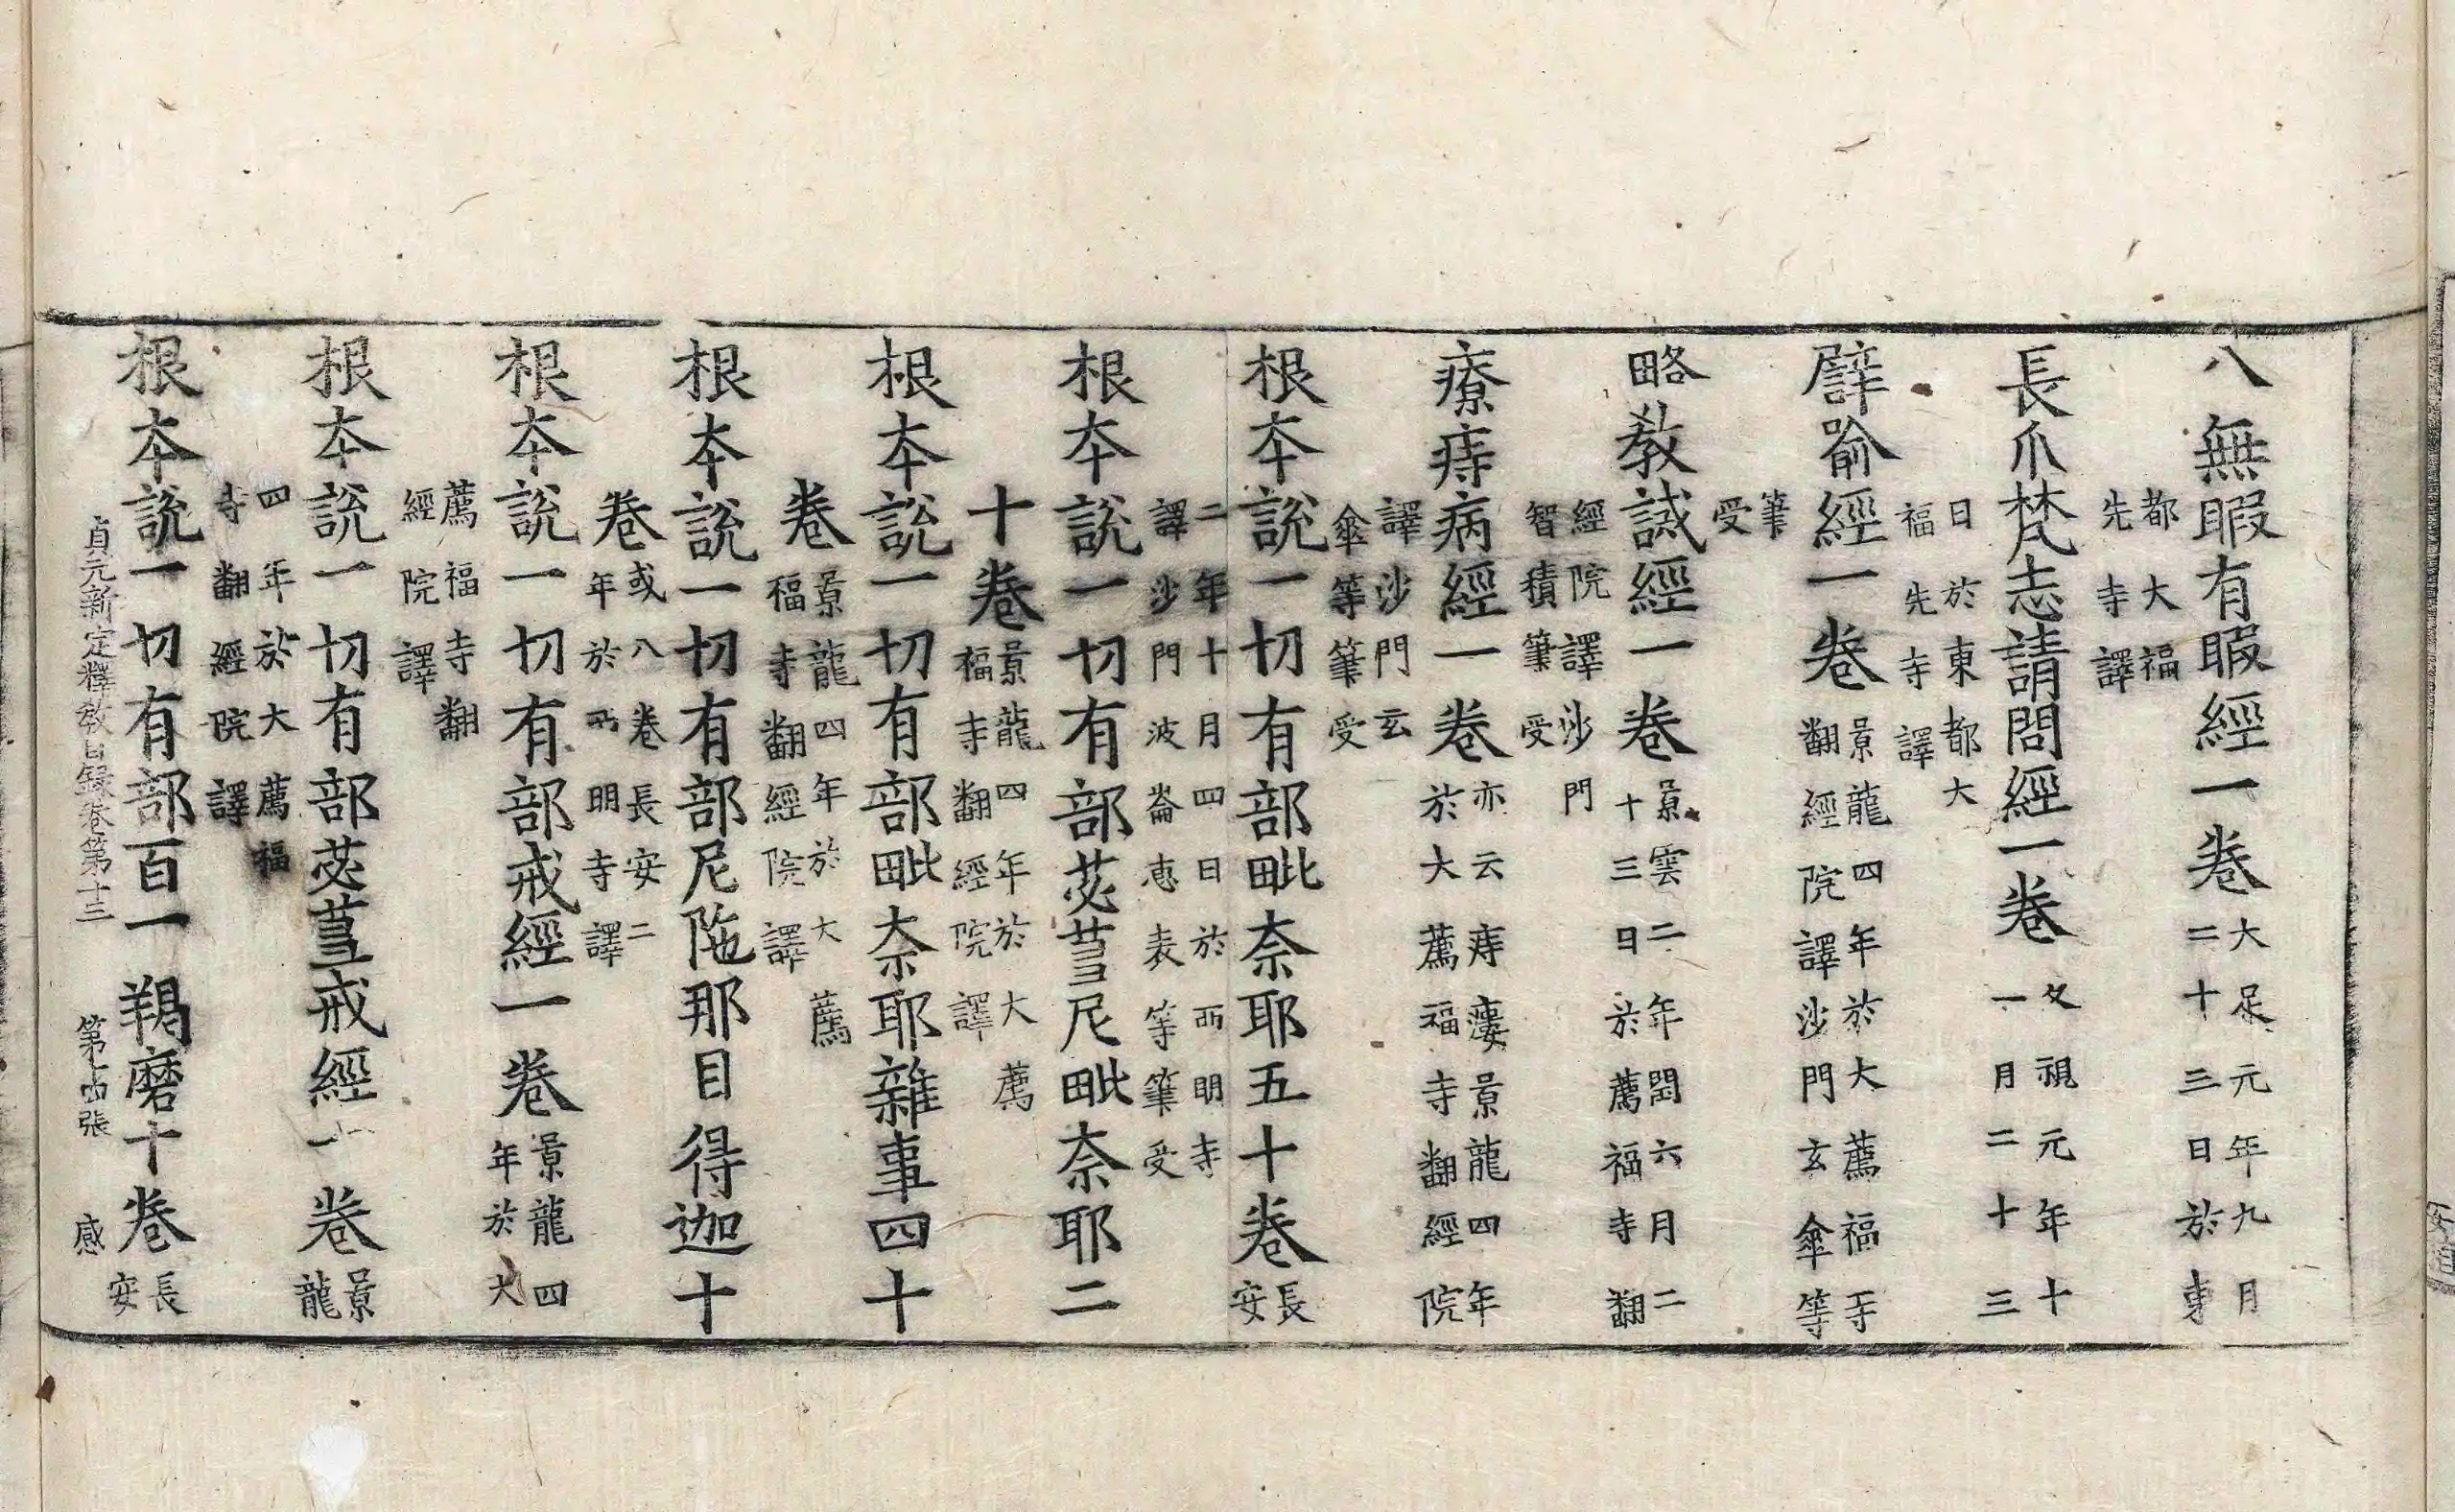 八無暇有暇經一卷
大足元年九月
二十三日於東
都大福
先寺譯
長爪梵志請問經一卷
久視元年十
一月二十三
日於東都大
福先寺譯
譬喻經一卷
景龍四年於大薦福寺
翻經院譯沙門玄傘等
筆
受
略教誡經一卷
景雲二年閏六月二
十三日於薦福寺翻
經院譯沙門
智積筆受
療痔病經一卷
亦云痔瘻景龍四年
於大薦福寺翻經院
譯沙門玄
傘等筆受
根本說一切有部毗奈耶五十卷
長
安
二年十月四日於西明寺
譯沙門波崙惠表等筆受
根本說一切有部苾芻尼毗奈耶二
十卷
景龍四年於大薦
福寺翻經院譯
根本說一切有部毗奈耶雜事四十
卷
景龍四年於大薦
福寺翻經院譯
根本說一切有部尼陁那目得迦十
卷
或八卷長安二
年於西明寺譯
根本說一切有部戒經一卷
景龍四
年於大
薦福寺翻
經院譯
根本說一切有部苾芻戒經一卷
景
龍
四年於大薦福
寺翻經院譯
根本說一切有部百一羯磨十卷
長
安
貞元新定釋教目錄卷第十三 第 張 感